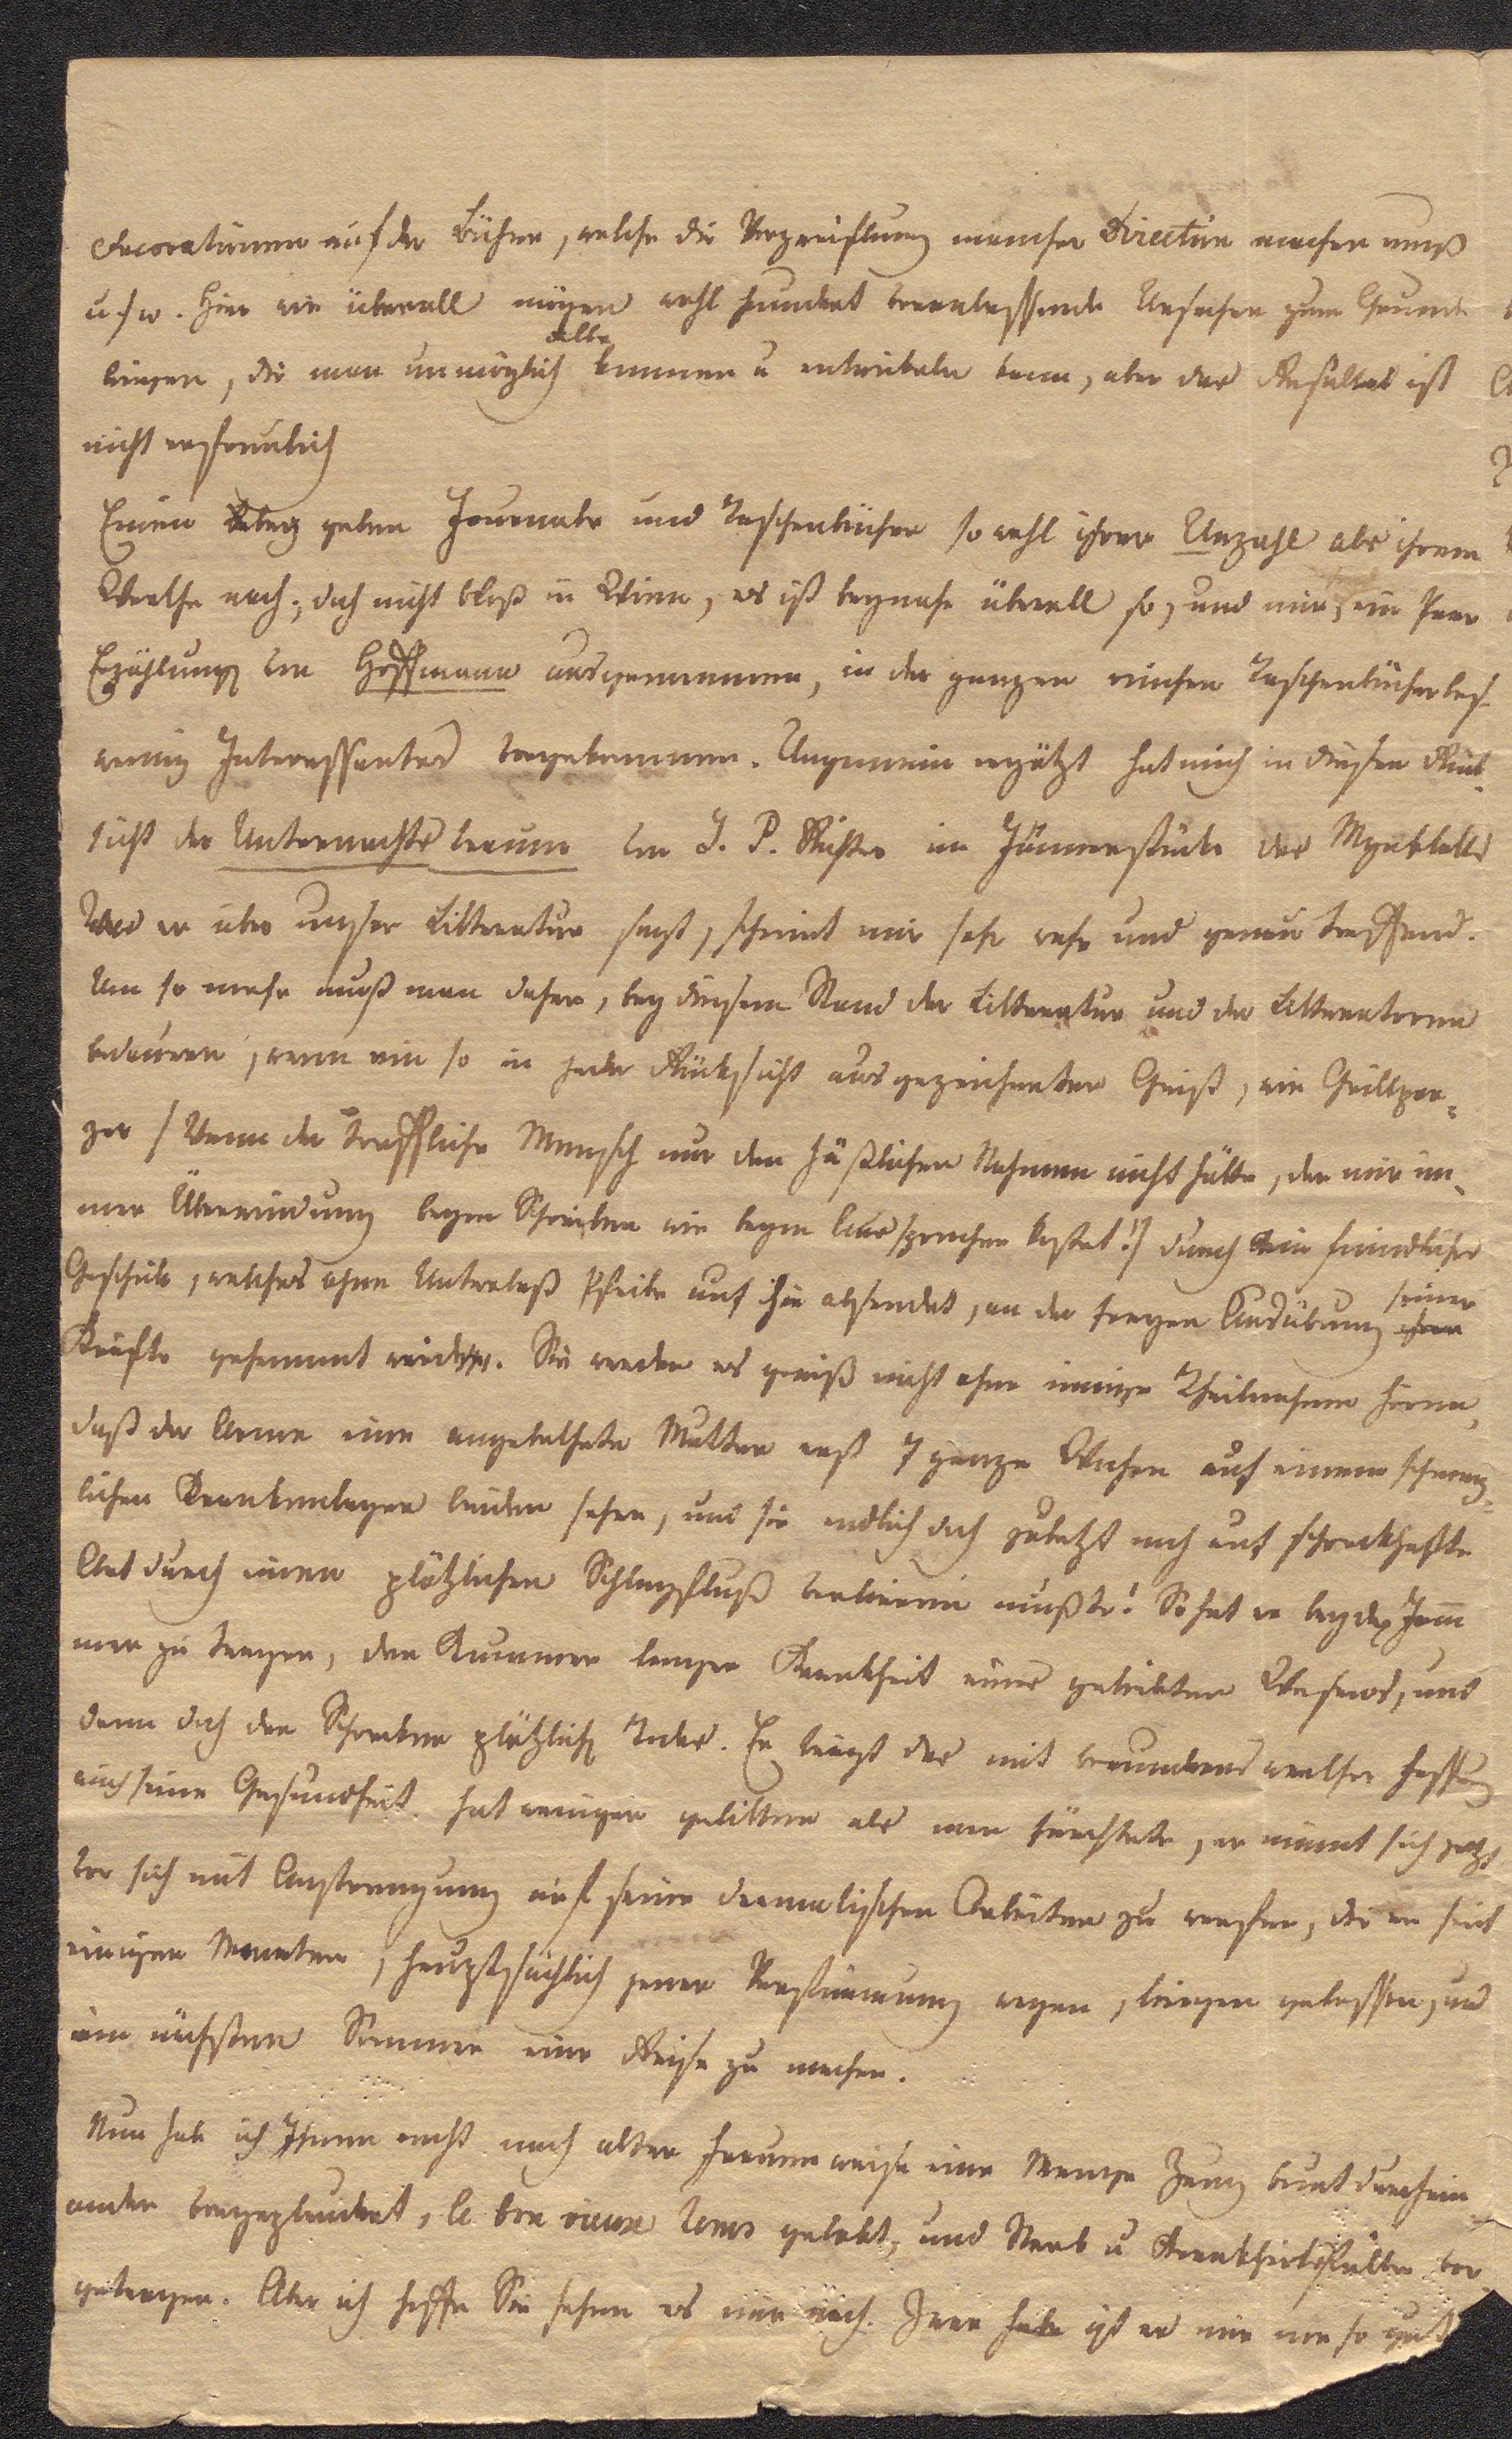 Decorationen auf der Bühne, welche die Verzweiflung mancher Direction machen muß
u. s w. Hier wie überall mögen wohl hundert veranlassende Ursachen zum Grunde
liegen, die man unmöglich alle kennen u entwickeln kann, aber das Resultat ist
nicht erfreulich
Einen Beleg geben Journale und Taschenbücher so wohl ihrer Unzahl als ihrem
Werthe nach; doch nicht bloß in Wien, es ist beynahe überall so, und mir, ein Paar
Erzählungen von Hoffmann ausgenommen, in der ganzen reichen Taschenbücherles
wenig Interessantes vorgekommen. Ungemein ergötzt hat mich in dieser Rück-
sicht der Unternachtstraum von J. P. Richter im Jännerstücke des Mgnblatts
Was er über unsre Litteratur sagt, scheint mir sehr wahr und genau treffend.
Um so mehr muß man daher, bey diesem Stand der Litteratur und der Litteratoren
bedauern, wenn ein so in jeder Rücksicht ausgezeichneter Geist, wie Grillpar-
zer / Wenn der treffliche Mensch nur den häßlichen Nahmen nicht hätte, der mir im-
mer Überwindung beym Schreiben wie beym Aussprechen kostet!/ durch ein feindliches
Geschick, welches ohne Unterlaß Pfeile auf ihn absendet, an der freyen Ausübung seiner
Kräfte gehemmt wird. Sie werden es gewiß nicht ohne innige Theilnahme hören,
daß der Arme eine angebethete Mutter erst 7 ganze Wochen auf einem schmerz-
lichen Krankenlager leiden sehen, und sie endlich doch zuletzt noch auf schreckhafte
Art durch einen plötzlichen Schlagfluß verlieren mußte! So hat er beyden Jam
mer zu tragen, den Kummer langer Krankheit eines geliebten Wesens, und
dann doch den Schrecken plötzlichen Todes. Er trägt das mit bewundernswerther Fassung
auch seine Gesundheit hat weniger gelitten als man fürchtete, er nimmt sich jetzt
vor sich mit Anstrengung auf seine dramatischen Arbeiten zu werfen, die er seit
einigen Monaten, hauptsächlich jener Verstimmung wegen, liegen gelassen, und
im nächsten Sommer eine Reise zu machen.
Nun hab ich Ihnen recht nach alter Frauenweise eine Menge Zeug bunt durchein
ander vorgeplaudert, le bon vieux tems gelobt, und Sterb u Krankheitsfälle vor
getragen. Aber ich hoffe Sie sehen es mir nach. Zwar ist es mir nie so gut